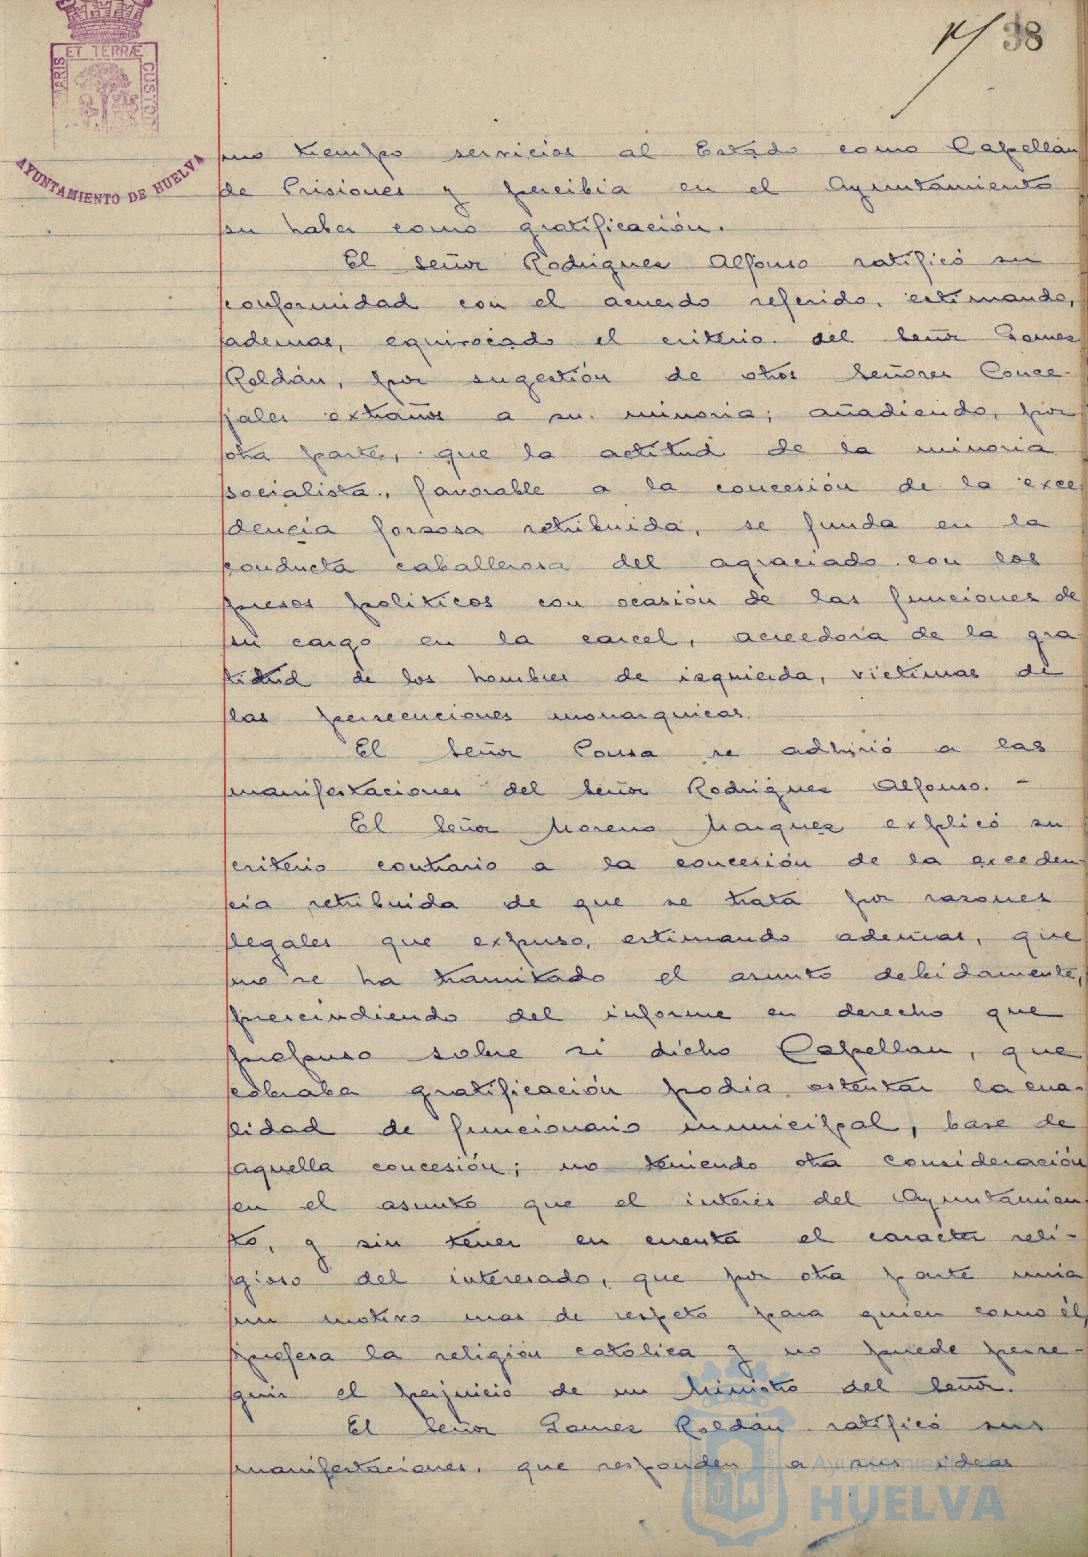 38
PORTUS MARIS ET TERRÆ CUSTODIA
AYUNTAMIENTO DE HUELVA
mo tiempo servicios al Estado como Capellán
de Prisiones y percibia en el Ayuntamiento
su haber como gratificación.
El Señor Rodriguez Alfonso ratificó su
conformidad con el acuerdo referido, estimando,
ademas, equivocado el criterio del Señor Gomez
Roldán, por sugestión de otros Señores Conce-
jales extraños a su minoria; añadiendo, por
otra parte, que la actitud de la minoria
socialista, favorable a la concesión de la exce
dencia forzosa retribuida, se funda en la
conducta caballerosa del agraciado con los
presos politicos con ocasión de las funciones de
su cargo en la carcel, acreedora de la gra
titud de los hombres de izquierda, victimas de
las persecuciones monarquicas.
El Señor Ponsa se adhirió a las
manifestaciones del Señor Rodriguez Alfonso. -
El Señor Moreno Marquez explicó su
criterio contrario a la concesión de la exceden-
cia retribuida de que se trata por razones
legales que expuso, estimando ademas, que
no se ha tramitado el asunto debidamente,
prescindiendo del informe en derecho que
propuso sobre si dicho Capellan, que
cobraba gratificación podia ostentar la cua-
lidad de funcionario municipal, base de
aquella concesión; no teniendo otra consideración
en el asunto que el interes del Ayuntamien-
to, y sin tener en cuenta el caracter reli-
gioso del interesado, que por otra parte unia
un motivo mas de respeto para quien como él,
profesa la religión católica y no puede perse-
guir el perjuicio de un Ministro del Señor.
El Señor Gomez Roldán ratificó sus
manifestaciones, que responden a sus ideas
Ayuntamiento de
HUELVA